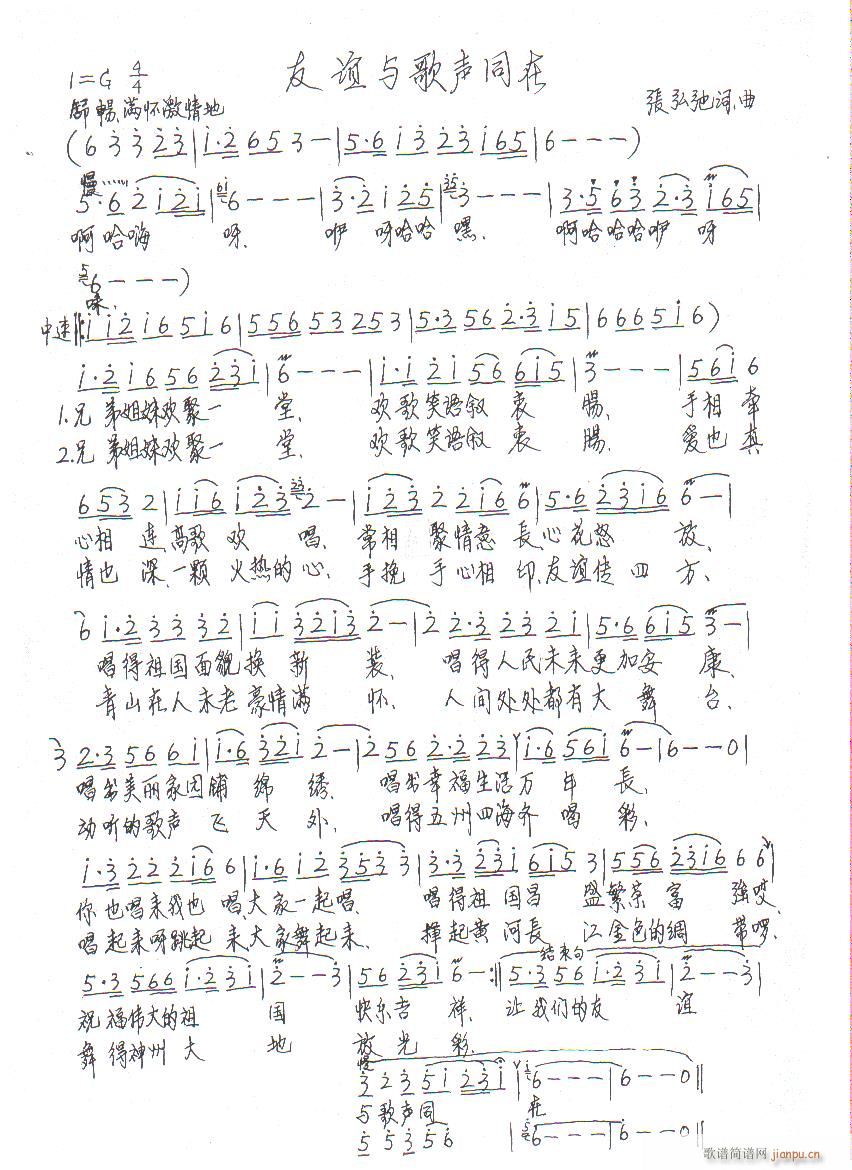 友谊与歌声同在
1=G 4/4
舒暢、满怀激情地
張弘弛词、曲
(6 3 3 2 3 | 1·2 6 5 3 — | 5·6 1 3 2 3 1 6 5 | 6 — — — )
慢
5·6 2 1 2 1 | 6 — — — | 3·2 1 2 5 | 3 — — — | 3·5 6 3 2·3 1 6 5 |
啊哈嗨 呀. 咿 呀哈哈 嘿. 啊哈哈哈咿 呀
6 — — — )
咪.
中速 1 1 2 1 6 5 1 6 | 5 5 6 5 3 2 5 3 | 5·3 5 6 2·3 1 5 | 6 6 6 5 1 6 )
1·2 1 6 5 6 2 3 1 | 6 — — — | 1·1 2 1 6 5 6 1 5 | 3 — — — | 5 6 1 6
1.兄弟姐妹欢聚一 堂、 欢歌笑语叙 衷 腸、 手相 牵
2.兄弟姐妹欢聚一 堂、 欢歌笑语叙 衷 腸、 爱也 真
6 5 3 2 | 1 1 6 1 2 3 2 — | 1 2 3 2 2 1 6 6 | 5·6 2 3 1 6 6 — |
心相 連、高歌 欢 唱、 常相 聚情意 長、心花怒 放、
情也 深、一颗 火热的心、手挽 手心相 印、友谊传 四 方、
6 1·2 3 3 3 2 | 1 1 3 2 1 3 2 — | 2 2·3 3 2 3 2 1 | 5·6 6 1 5 3 — |
唱得祖国面貌换 新 装、 唱得人民未来更加安 康、
青山在人未老豪情满 怀、 人间处处都有大 舞 台、
3 2·3 5 6 6 1 | 1·6 3 2 1 2 — | 2 5 6 2·2 2 3 | 1·6 5 6 1 6 — | 6 — — 0 |
唱出美丽家园铺 绵 绣、 唱出幸福生活万 年 長、
动听的歌声 飞 天 外、 唱得五州四海齐 喝 彩、
1·3 2 2 2 1 6 6 | 1·6 1 2 3 5 3 3 | 3·3 2 3 1 6 1 5 3 | 5 5 6 2 3 1 6 6 6 |
你也唱来我也 唱、大家一起唱、 唱得祖 国昌 盛繁荣 富 強哎、
唱起来呀跳起 来、大家舞起来、 揮起黄 河長 江金色的绸 带啰、
结束句
5·3 5 6 6 1·2 3 1 | 2 — — 3 | 5 6 2 3 1 6 — :| 5·3 5 6 1·2 3 1 | 2 — — 3 |
祝福伟大的祖 国 快乐吉 祥、 让我们的友 谊
舞得神州大 地 放光 彩、
慢
3 2 3 5 1 2 3 1 | 6 — — — | 6 — — 0 ‖
与歌声同 在
5 5 3 5 6 | 6 — — — | 6 — — 0 ‖
歌谱简谱网 jianpu.cn